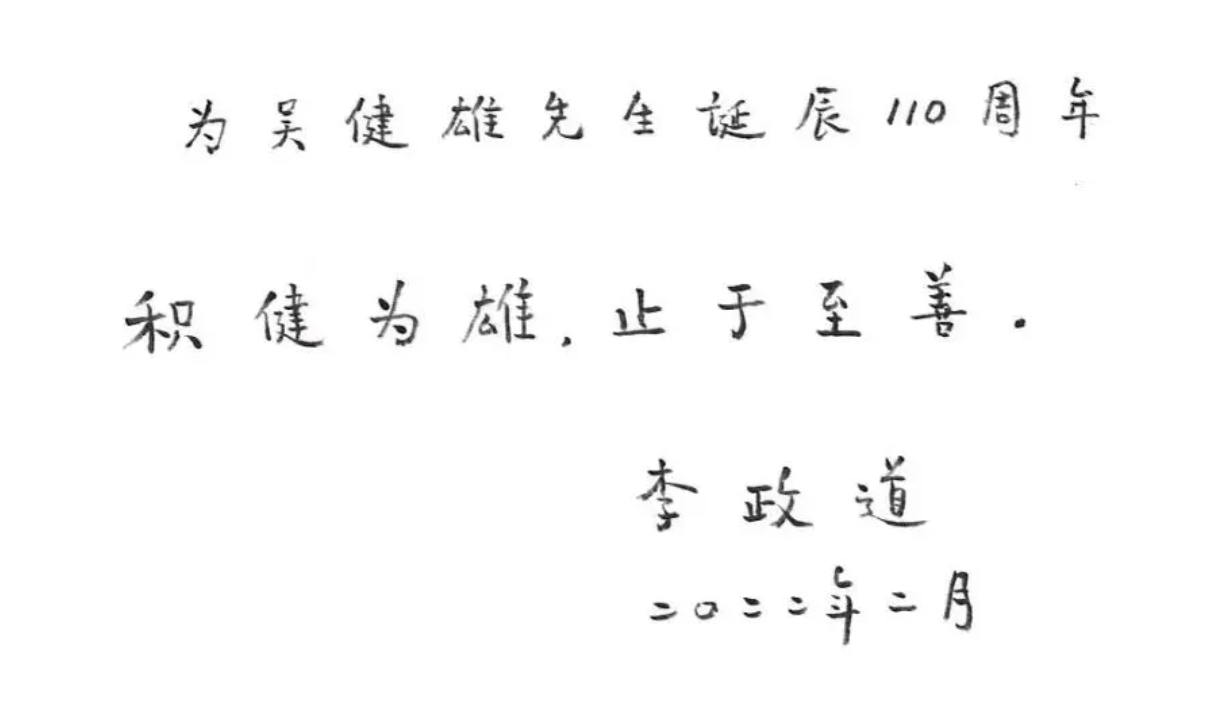 为吴健雄先生誕辰110周年
积健为雄，止于至善．
李政道
二〇二二年二月